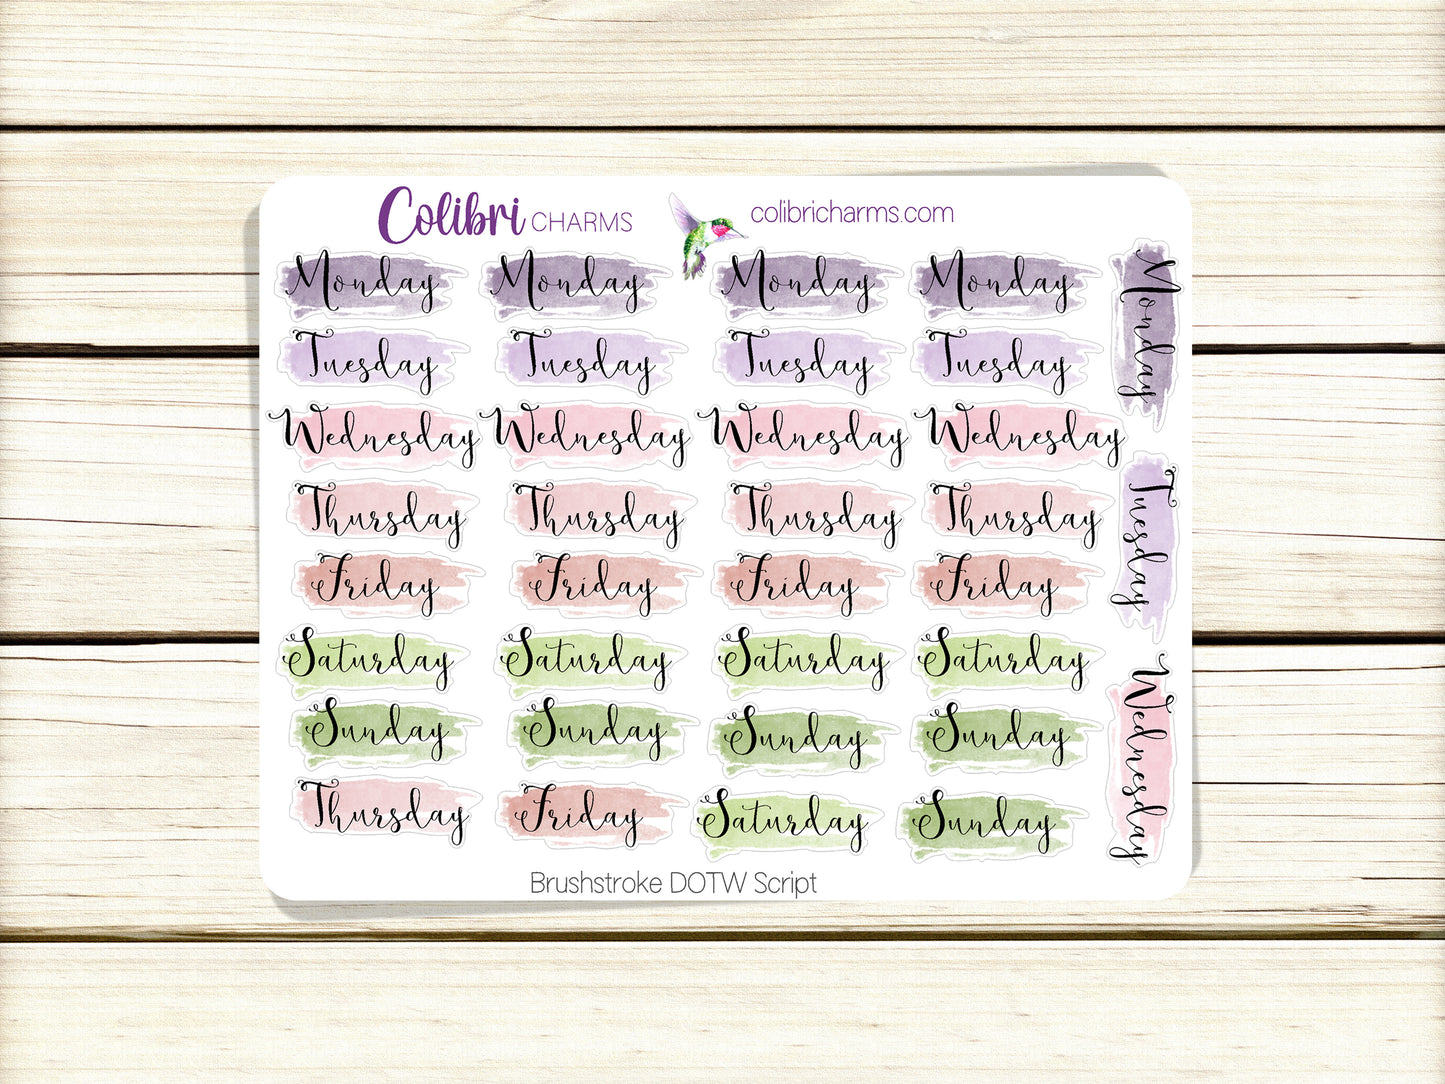 Colibri CHARMS colibricharms.com
Monday Monday Monday Monday
Tuesday Tuesday Tuesday Tuesday
Wednesday Wednesday Wednesday Wednesday
Thursday Thursday Thursday Thursday
Friday Friday Friday Friday
Saturday Saturday Saturday Saturday
Sunday Sunday Sunday Sunday
Thursday Friday Saturday Sunday
Monday
Tuesday
Wednesday
Brushstroke DOTW Script